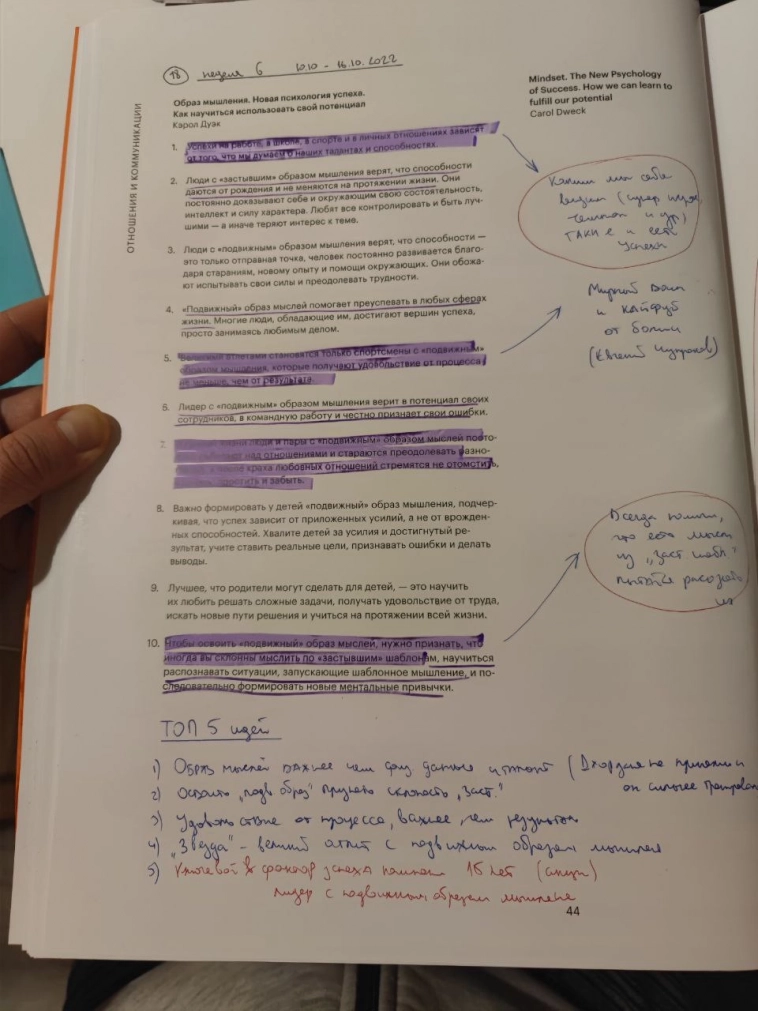 18 неделя 6 10.10 - 16.10.2022
ОТНОШЕНИЯ И КОММУНИКАЦИИ
Образ мышления. Новая психология успеха.
Как научиться использовать свой потенциал
Кэрол Дуэк
Mindset. The New Psychology
of Success. How we can learn to
fulfill our potential
Carol Dweck
1. Успехи на работе, в школе, в спорте и в личных отношениях зависят
от того, что мы думаем о наших талантах и способностях.
2. Люди с «застывшим» образом мышления верят, что способности
даются от рождения и не меняются на протяжении жизни. Они
постоянно доказывают себе и окружающим свою состоятельность,
интеллект и силу характера. Любят все контролировать и быть луч-
шими — а иначе теряют интерес к теме.
3. Люди с «подвижным» образом мышления верят, что способности —
это только отправная точка, человек постоянно развивается благо-
даря стараниям, новому опыту и помощи окружающих. Они обожа-
ют испытывать свои силы и преодолевать трудности.
4. «Подвижный» образ мыслей помогает преуспевать в любых сферах
жизни. Многие люди, обладающие им, достигают вершин успеха,
просто занимаясь любимым делом.
5. Великими атлетами становятся только спортсмены с «подвижным»
образом мышления, которые получают удовольствие от процесса
не меньше, чем от результата.
6. Лидер с «подвижным» образом мышления верит в потенциал своих
сотрудников, в командную работу и честно признает свои ошибки.
7. люди и пары с «подвижным» образом мыслей посто-
над отношениями и стараются преодолевать разно-
после краха любовных отношений стремятся не отомстить,
простить и забыть.
8. Важно формировать у детей «подвижный» образ мышления, подчер-
кивая, что успех зависит от приложенных усилий, а не от врожден-
ных способностей. Хвалите детей за усилия и достигнутый ре-
зультат, учите ставить реальные цели, признавать ошибки и делать
выводы.
9. Лучшее, что родители могут сделать для детей, — это научить
их любить решать сложные задачи, получать удовольствие от труда,
искать новые пути решения и учиться на протяжении всей жизни.
10. Чтобы освоить «подвижный» образ мыслей, нужно признать, что
иногда вы склонны мыслить по «застывшим» шаблонам, научиться
распознавать ситуации, запускающие шаблонное мышление, и по-
следовательно формировать новые ментальные привычки.
Каким мы себя
видим (супер игрок,
чемпион и др)
ТАКИЕ и есть
успехи
и кайфуй
от
(Евгений
Всегда помни,
что есть мысли
из „заст шабл"
пытайся распознать
их
ТОП 5 идей
1) Образ мыслей важнее чем физ данные (Джордана не приняли и
он сильнее тренировал
2) Освоить „подв образ" признать склонность „заст."
3) Удовольствие от процесса, важнее, чем результат
4) „Звезда" - великий атлет с подвижным образом мышления
5) Ключевой фактор успеха компании 15 лет
лидер с подвижным образом мышления
44